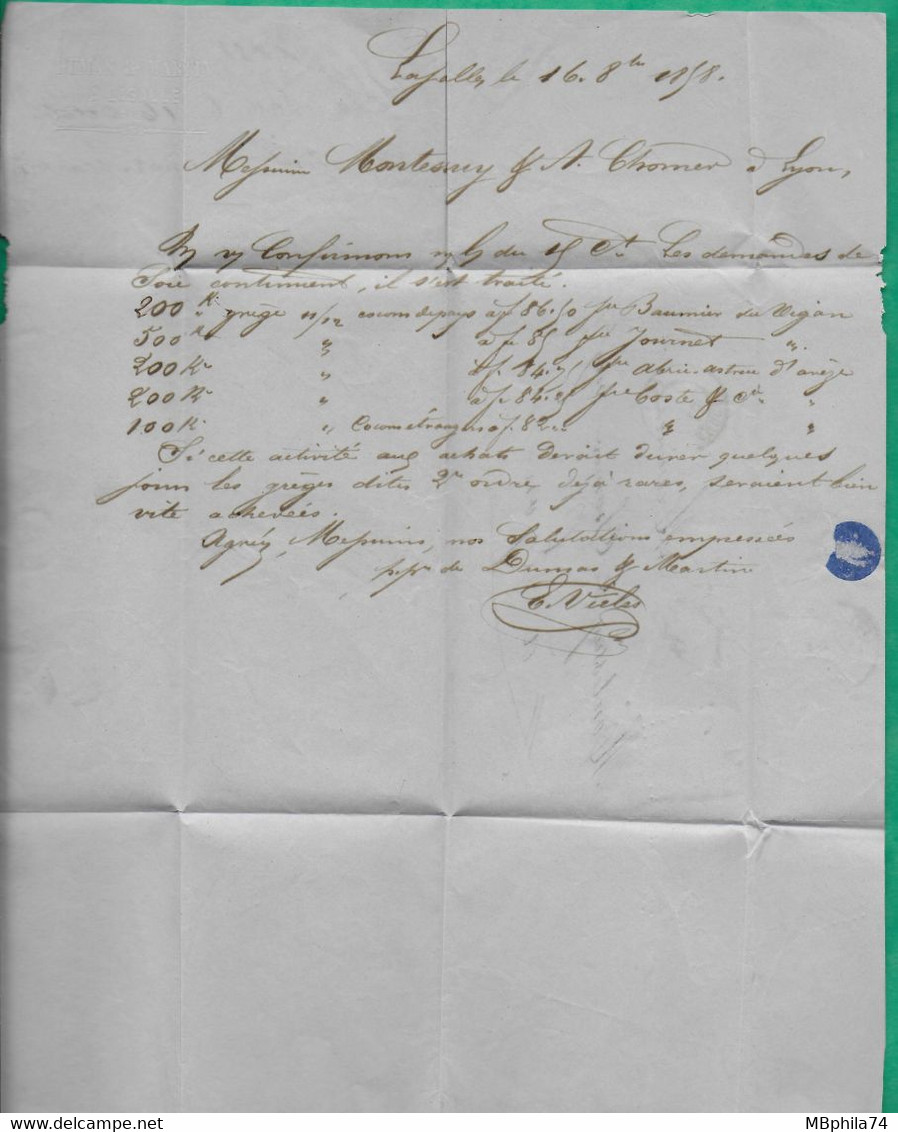 Lasalle, le 16. 8bre 1858.
Messieurs Montessuy & A. Chomer à Lyon,
Ns vs Confirmons n/ du 15 Ct. Les demandes de
Soie continuent, il s'est traité.
200 K. grège 11/12 cocons de pays à f. 86.50 par Baumier du Vigan
500 K " à f. 85 par Journet "
200 K. " à f. 84.75 d'
200 K. " à f. 84.25 par Coste & Cie "
100 K. " Cocons étrangers à f. 82 " "
Si cette activité aux achats devait durer quelques
jours les grèges dites 2e ordre, déjà rares, seraient bien
vite achevées.
Agréez, Messieurs, nos Salutations empressées
p. pon de Dumas & Martin
E.
MBphila74